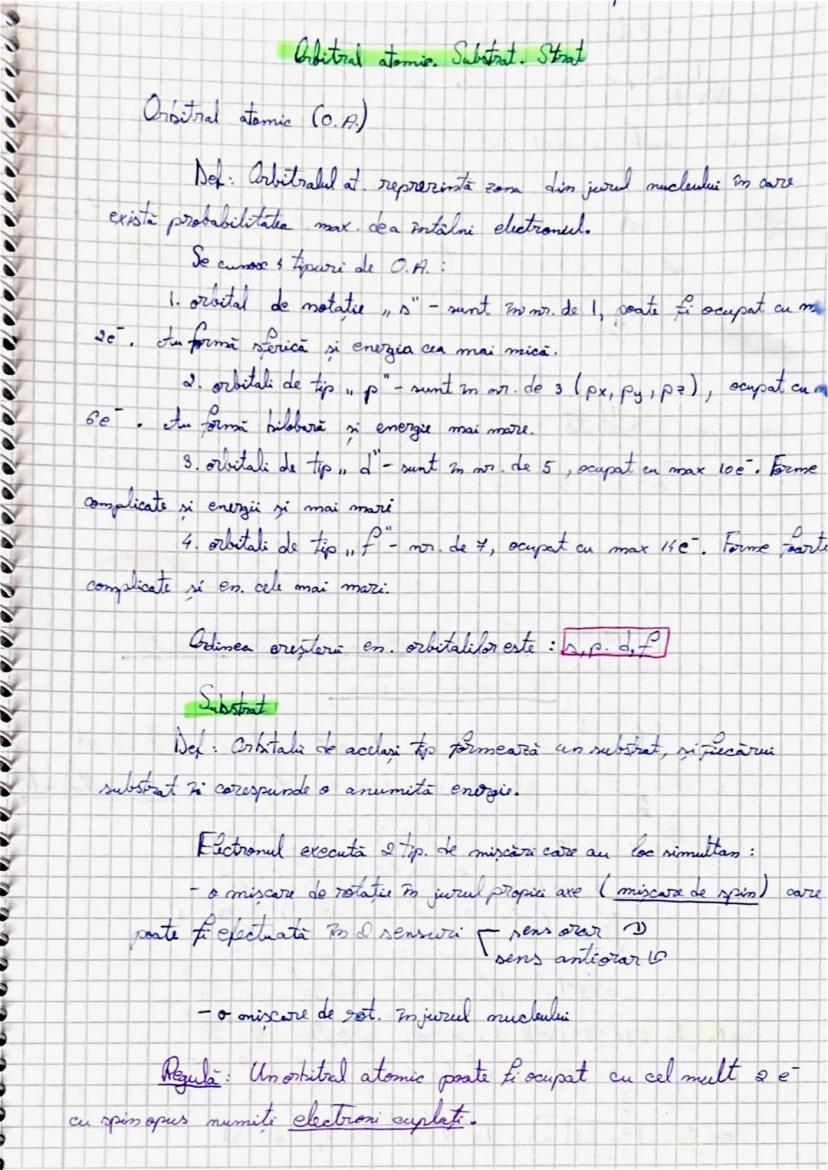 Orbitral atomic. Substrat. Strat
Orbitral atomic (O.A.)
Def: Orbitralul at. reprezintă zona din jurul nucleului în care
există probabilitatea max. dea întâlni electronul.
Se cunosc 4 tipuri de O.A.:
1. orbital de notație „s" - sunt în nr. de 1, poate fi ocupat cu
2e⁻. Au formă sferică și energia cea mai mică.
2. orbitali de tip „p" - sunt în nr. de 3 (px, py, pz), ocupat cu
6e⁻. Au formă bilobară și energie mai mare.
3. orbitali de tip „d" - sunt în nr. de 5, ocupat cu max 10e⁻. Forme
complicate și energii și mai mari
4. orbitali de tip „f" - nr. de 7, ocupat cu max 14e⁻. Forme foarte
complicate și en. cele mai mari.
Ordinea creșterii en. orbitalilor este: s, p. d, f
Substrat
Def: Orbitalii de același tip formează un substrat, și fiecărui
substrat îi corespunde o anumită energie.
Electronul execută 2 tip. de mișcări care au loc simultan:
- o mișcare de rotație în jurul propiei axe (mișcare de spin) care
poate fi efectuată în 2 sensuri sens orar ↻
sens antiorar ↺
- o mișcare de rot. în jurul nucleului
Regulă: Un orbitral atomic poate fi ocupat cu cel mult 2 e⁻
cu spin opus numiți electroni cuplați.